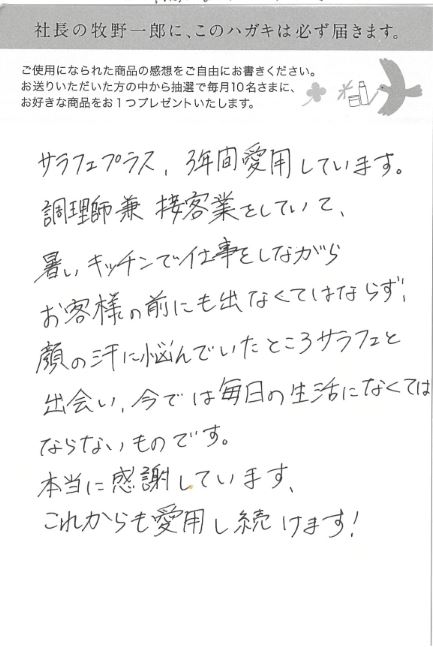 社長の牧野一郎に、このハガキは必ず届きます。
ご使用になられた商品の感想をご自由にお書きください。
お送りいただいた方の中から抽選で毎月10名さまに、
お好きな商品をお1つプレゼントいたします。
サラフェプラス、3年間愛用しています。
調理師兼接客業をしていて、
暑いキッチンで仕事をしながら
お客様の前にも出なくてはならず、
顔の汗に悩んでいたところサラフェと
出会い、今では毎日の生活になくては
ならないものです。
本当に感謝しています、
これからも愛用し続けます!